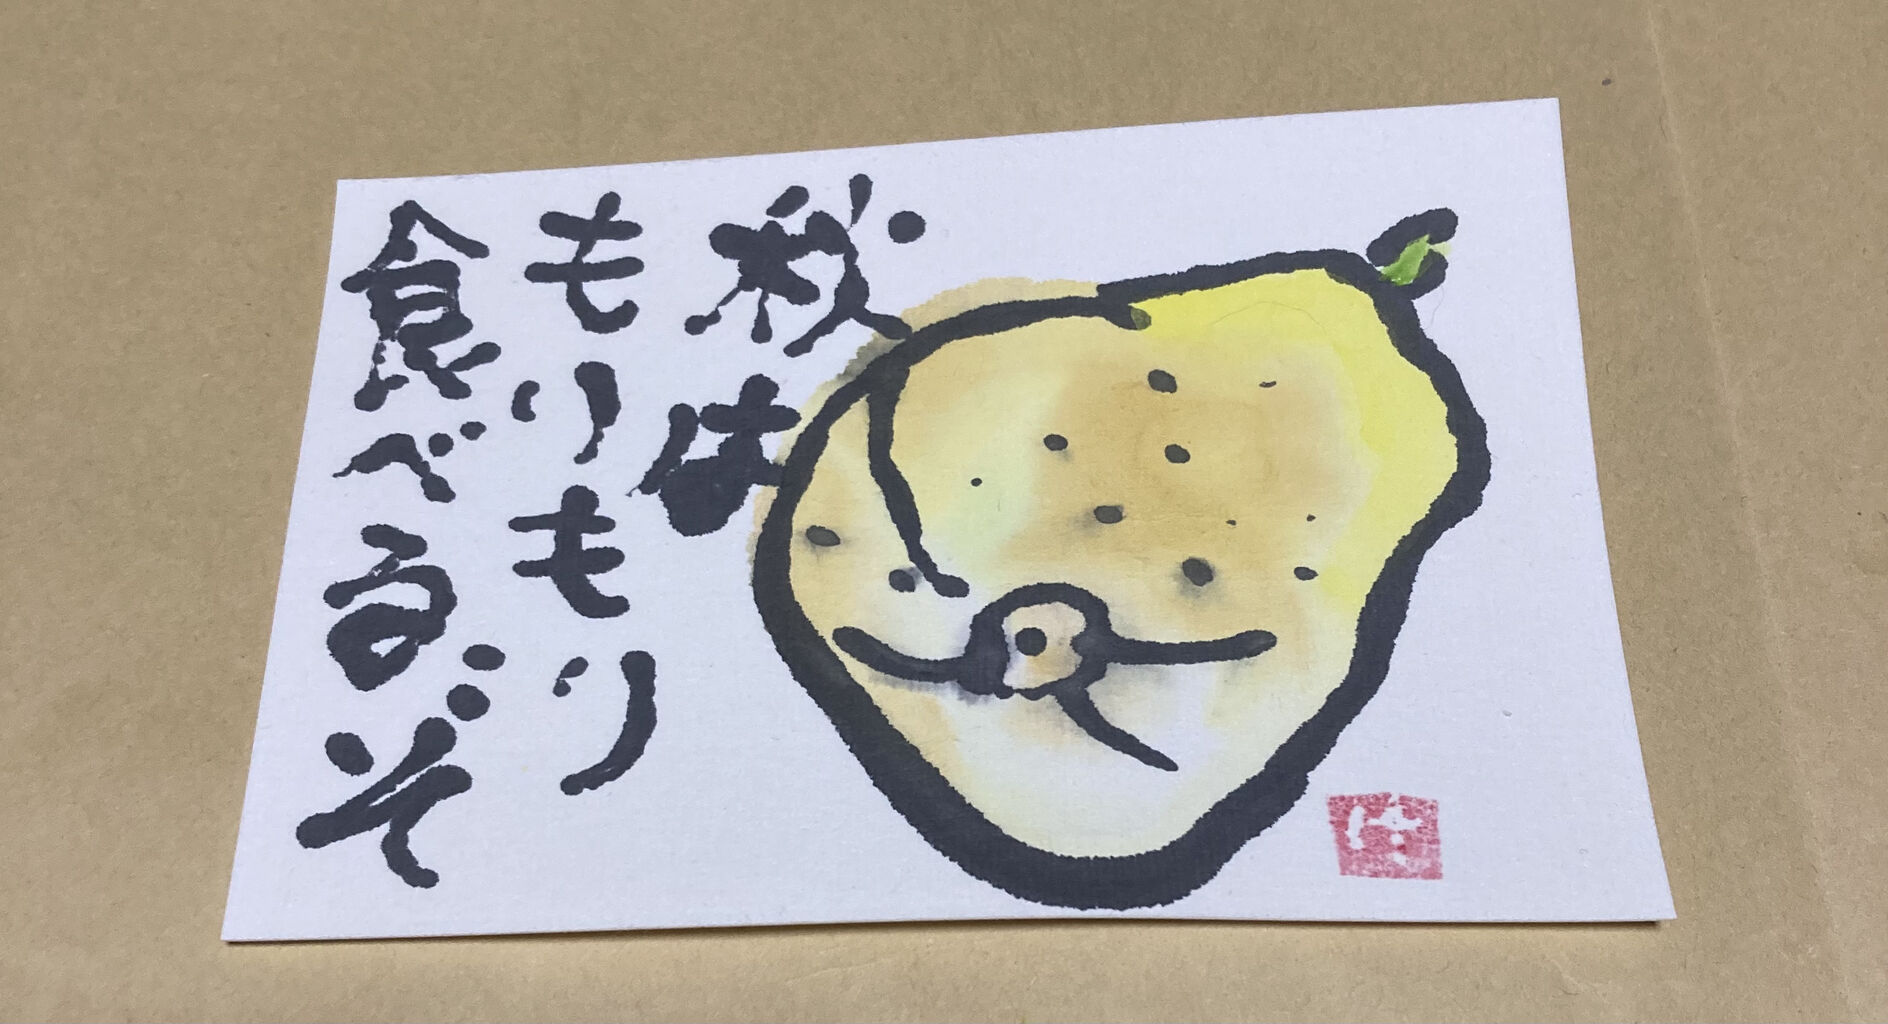 秋は
もりもり
食べるぞ
は